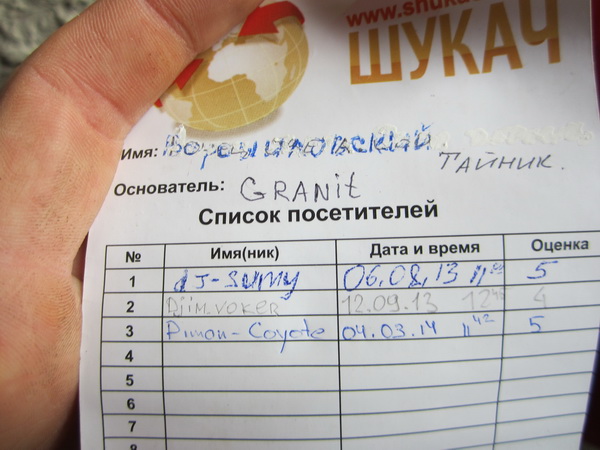 www.shuka
ШУКАЧ
Имя: Ворошиловский Тайник.
Основатель: GRANit
Список посетителей
№ Имя(ник) Дата и время Оценка
1 dJ-sumy 06.08.13 11⁰⁰ 5
2 Djim.voker 12.09.13 12⁴⁵ 4
3 Pimon-Coyote 04.03.14 11⁴² 5
4
5
6
7
8